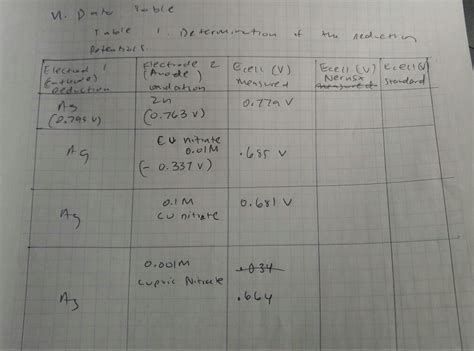 VI. Data Table
Table 1. Determination of the Reduction
Potentials.
Electrode 1
(Cathode)
Reduction
Electrode 2
(Anode)
oxidation
Ecell (V)
measured
Ecell (V)
Nernst
measured
Ecell (V)
standard
Ag
(0.799 V)
Zn
(0.763 V)
0.779 V
Ag
CU nitrate
0.01M
(- 0.337 V)
.685 V
Ag
0.1M
CU nitrate
0.681 V
Ag
0.001M
Cupric Nitrate
.034
.664